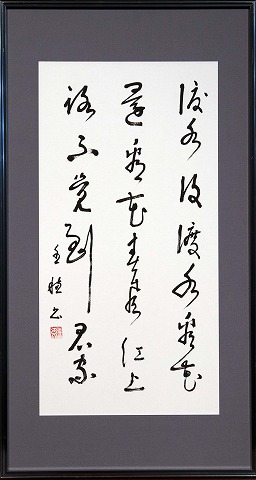 渡水復渡水看花
還看花春風江上
路不覚到君家